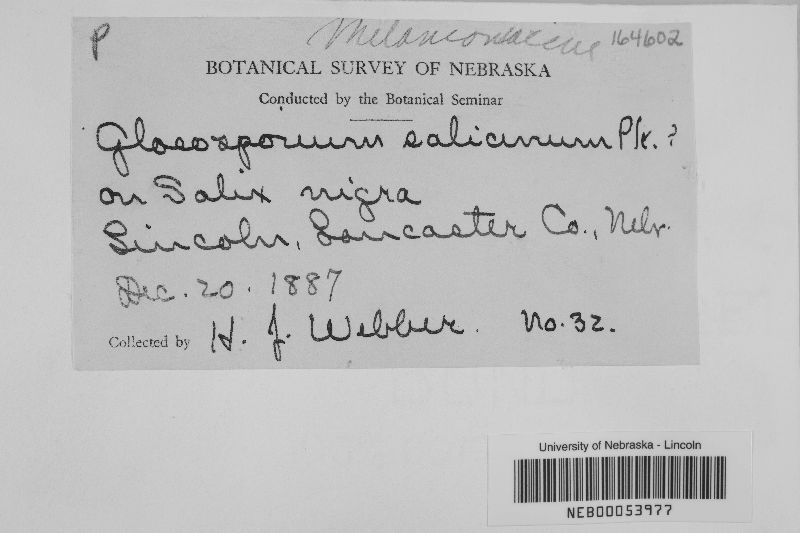 P Melanconiaceae 164602
BOTANICAL SURVEY OF NEBRASKA
Conducted by the Botanical Seminar
Gloeosporium salicinum Pk. ?
on Salix nigra
Lincoln, Lancaster Co., Nebr.
Dec. 20. 1887
Collected by H. J. Webber. No. 32.
University of Nebraska - Lincoln
NEB00053977